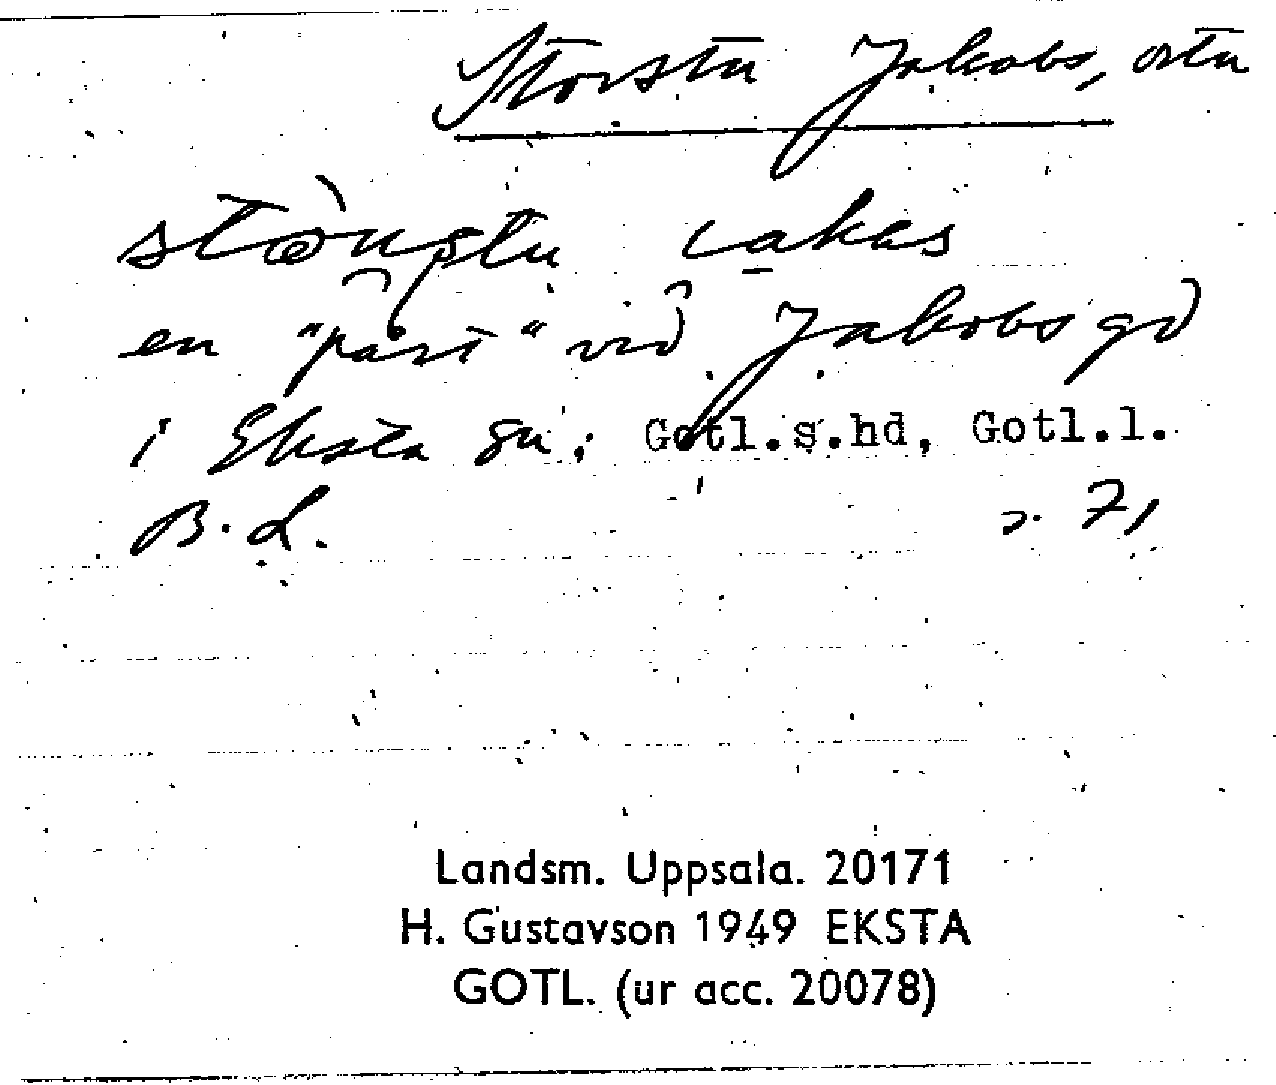 Storstu Jakobs, ortn
en "part" vid Jakobs gd
i Eksta sn: Gotl.s.hd, Gotl.l.
B. L. s. 71
Landsm. Uppsala. 20171
H. Gustavson 1949 EKSTA
GOTL. (ur acc. 20078)